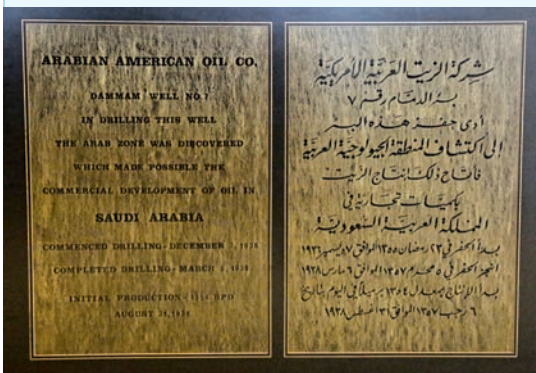 ARABIAN AMERICAN OIL CO.
DAMMAM WELL NO. 7
IN DRILLING THIS WELL
THE ARAB ZONE WAS DISCOVERED
WHICH MADE POSSIBLE THE
COMMERCIAL DEVELOPMENT OF OIL IN
SAUDI ARABIA
COMMENCED DRILLING - DECEMBER 7, 1936
COMPLETED DRILLING - MARCH 6, 1938
INITIAL PRODUCTION - BPD
AUGUST 31, 1938
شركة الزيت العربية الأمريكية
بئر الدمام رقم ٧
أدى حفر هذه البئر
إلى اكتشاف المنطقة الجيولوجية العربية
فأتاح ذلك إنتاج الزيت
بكميات تجارية في
المملكة العربية السعودية
بدأ الحفر في ٢٣ رمضان ١٣٥٥ الموافق ٧ ديسمبر ١٩٣٦
انتهى الحفر في ٥ محرم ١٣٥٧ الموافق ٦ مارس ١٩٣٨
بدأ الإنتاج بمعدل برميلا في اليوم بتاريخ
٦ رجب ١٣٥٧ الموافق ٣١ اغسطس ١٩٣٨